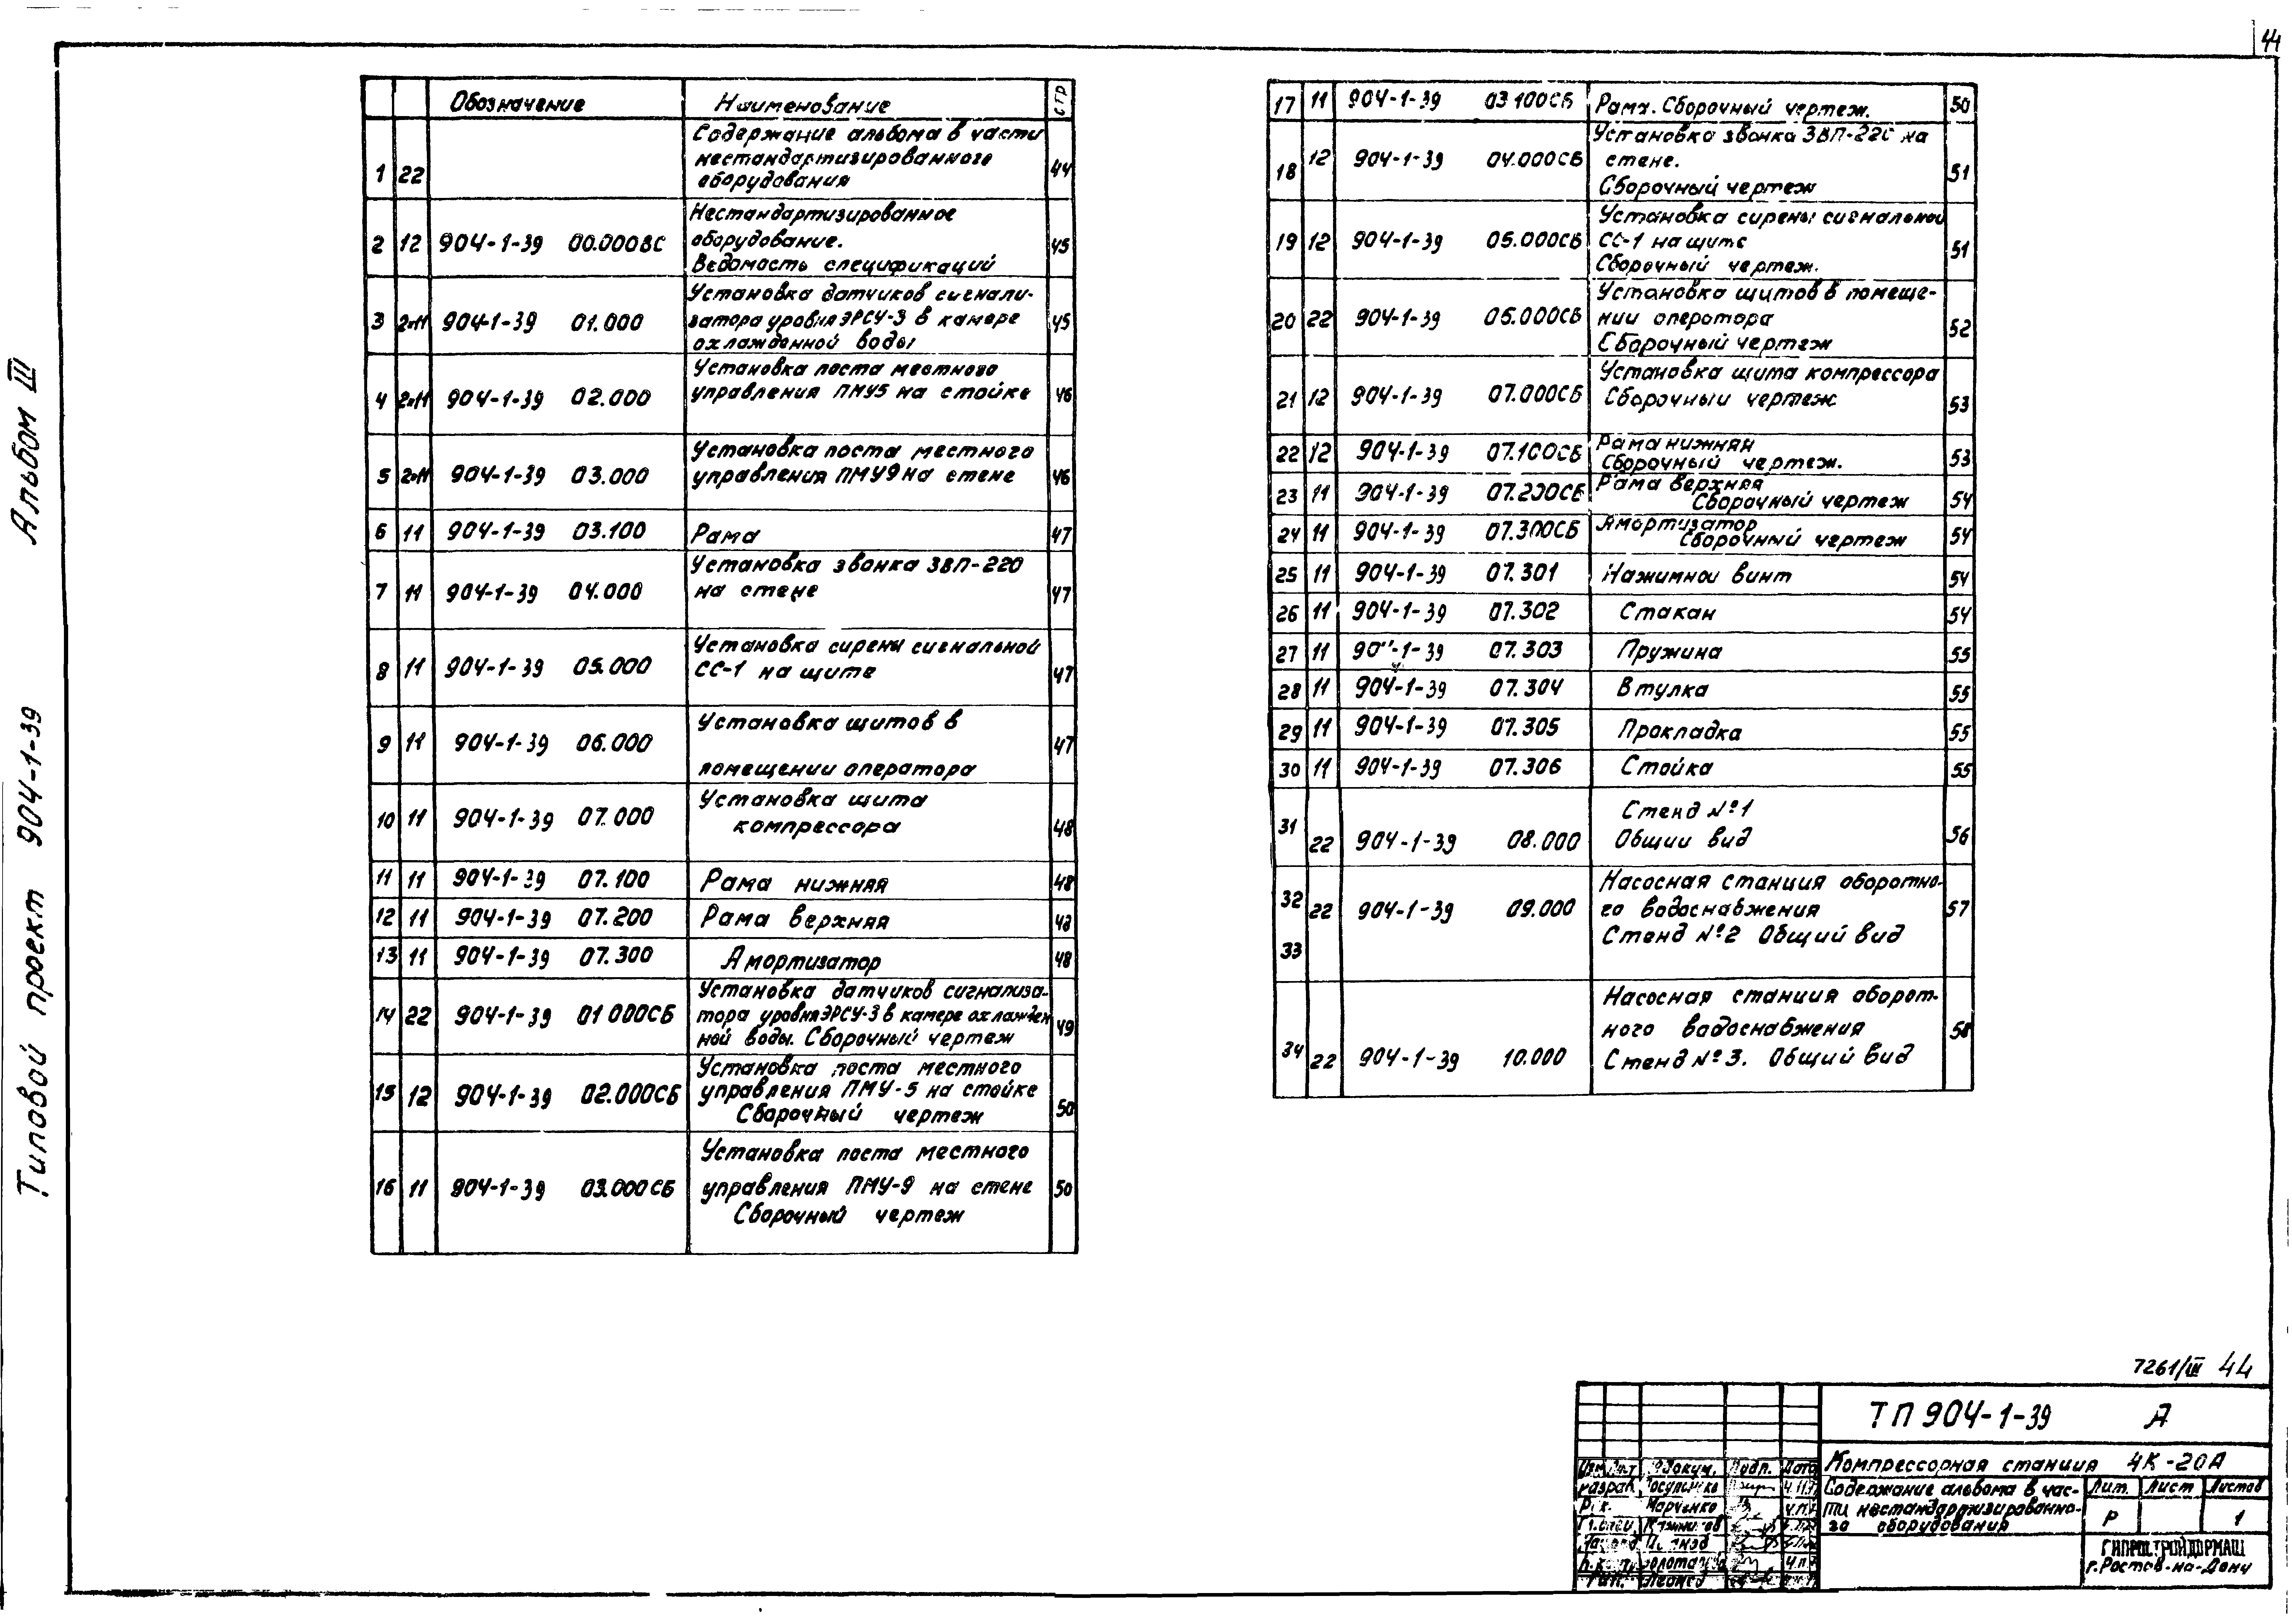 44
Альбом III
Типовой проект 904-1-39
Обозначение Наименование стр
1 22 Содержание альбома в части 44
нестандартизированного
оборудования
2 12 904-1-39 00.000ВС Нестандартизированное 45
оборудование.
Ведомость спецификаций
3 2х11 904-1-39 01.000 Установка датчиков сигнали- 45
затора уровня ЭРСУ-3 в камере
охлажденной воды
4 2х11 904-1-39 02.000 Установка поста местного 46
управления ПМУ5 на стойке
5 2х11 904-1-39 03.000 Установка поста местного 46
управления ПМУ9 на стене
6 11 904-1-39 03.100 Рама 47
7 11 904-1-39 04.000 Установка звонка ЗВП-220 47
на стене
8 11 904-1-39 05.000 Установка сирены сигнальной 47
СС-1 на щите
9 11 904-1-39 06.000 Установка щитов в 47
помещении оператора
10 11 904-1-39 07.000 Установка щита 48
компрессора
11 11 904-1-39 07.100 Рама нижняя 48
12 11 904-1-39 07.200 Рама верхняя 48
13 11 904-1-39 07.300 Амортизатор 48
14 22 904-1-39 01 000СБ Установка датчиков сигнализа- 49
тора уровня ЭРСУ-3 в камере охлажден
ной воды. Сборочный чертеж
15 12 904-1-39 02.000СБ Установка поста местного 50
управления ПМУ-5 на стойке
Сборочный чертеж
16 11 904-1-39 03.000СБ Установка поста местного 50
управления ПМУ-9 на стене
Сборочный чертеж
17 11 904-1-39 03 100СБ Рама. Сборочный чертеж. 50
18 12 904-1-39 04.000СБ Установка звонка ЗВП-220 на 51
стене.
Сборочный чертеж
19 12 904-1-39 05.000СБ Установка сирены сигнальной 51
СС-1 на щите
Сборочный чертеж.
20 22 904-1-39 06.000СБ Установка щитов в помеще- 52
нии оператора
Сборочный чертеж
21 12 904-1-39 07.000СБ Установка щита компрессора 53
Сборочный чертеж
22 12 904-1-39 07.100СБ Рама нижняя 53
Сборочный чертеж.
23 11 904-1-39 07.200СБ Рама верхняя 54
Сборочный чертеж
24 11 904-1-39 07.300СБ Амортизатор 54
Сборочный чертеж
25 11 904-1-39 07.301 Нажимной винт 54
26 11 904-1-39 07.302 Стакан 54
27 11 904-1-39 07.303 Пружина 55
28 11 904-1-39 07.304 Втулка 55
29 11 904-1-39 07.305 Прокладка 55
30 11 904-1-39 07.306 Стойка 55
31 22 904-1-39 08.000 Стенд №1 56
Общий вид
32 22 904-1-39 09.000 Насосная станция оборотно- 57
го водоснабжения
33 Стенд №2 Общий вид
34 22 904-1-39 10.000 Насосная станция оборот- 58
ного водоснабжения
Стенд №3. Общий вид
7261/III 44
ТП 904-1-39 А
Компрессорная станция 4К-20А
Содержание альбома в час-
ти нестандартизированно-
го оборудования
Лит. Лист Листов
Р 1
ГИПРОСТРОЙДОРМАШ
г. Ростов-на-Дону
Изм Лист № докум. Подп. Дата
Разраб.
Марченко